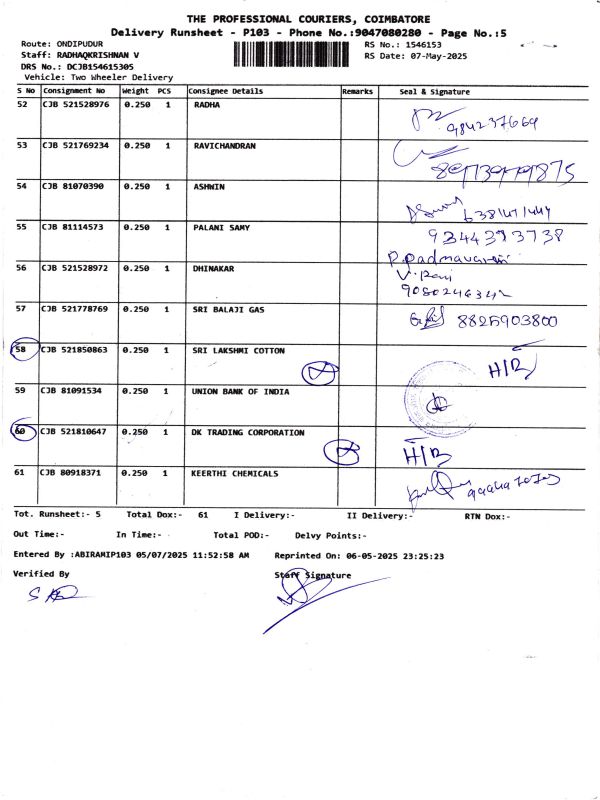 THE PROFESSIONAL COURIERS, COIMBATORE
Delivery Runsheet - P103 - Phone No.:9047080280 - Page No.:5
Route: ONDIPUDUR RS No.: 1546153
Staff: RADHAQKRISHNAN V RS Date: 07-May-2025
DRS No.: DCJB154615305
Vehicle: Two Wheeler Delivery
S No Consignment No Weight PCS Consignee Details Remarks Seal & Signature
52 CJB 521528976 0.250 1 RADHA
984237669
53 CJB 521769234 0.250 1 RAVICHANDRAN
54 CJB 81070390 0.250 1 ASHWIN
55 CJB 81114573 0.250 1 PALANI SAMY
9344393738
P.Padmavathi
56 CJB 521528972 0.250 1 DHINAKAR
V. Rani
9080246342
57 CJB 521778769 0.250 1 SRI BALAJI GAS
8825903800
58 CJB 521850863 0.250 1 SRI LAKSHMI COTTON
H/B
59 CJB 81091534 0.250 1 UNION BANK OF INDIA
60 CJB 521810647 0.250 1 DK TRADING CORPORATION
H/B
61 CJB 80918371 0.250 1 KEERTHI CHEMICALS
Tot. Runsheet:- 5 Total Dox:- 61 I Delivery:- II Delivery:- RTN Dox:-
Out Time:- In Time:- Total POD:- Delvy Points:-
Entered By :ABIRAMIP103 05/07/2025 11:52:58 AM Reprinted On: 06-05-2025 23:25:23
Verified By Staff Signature